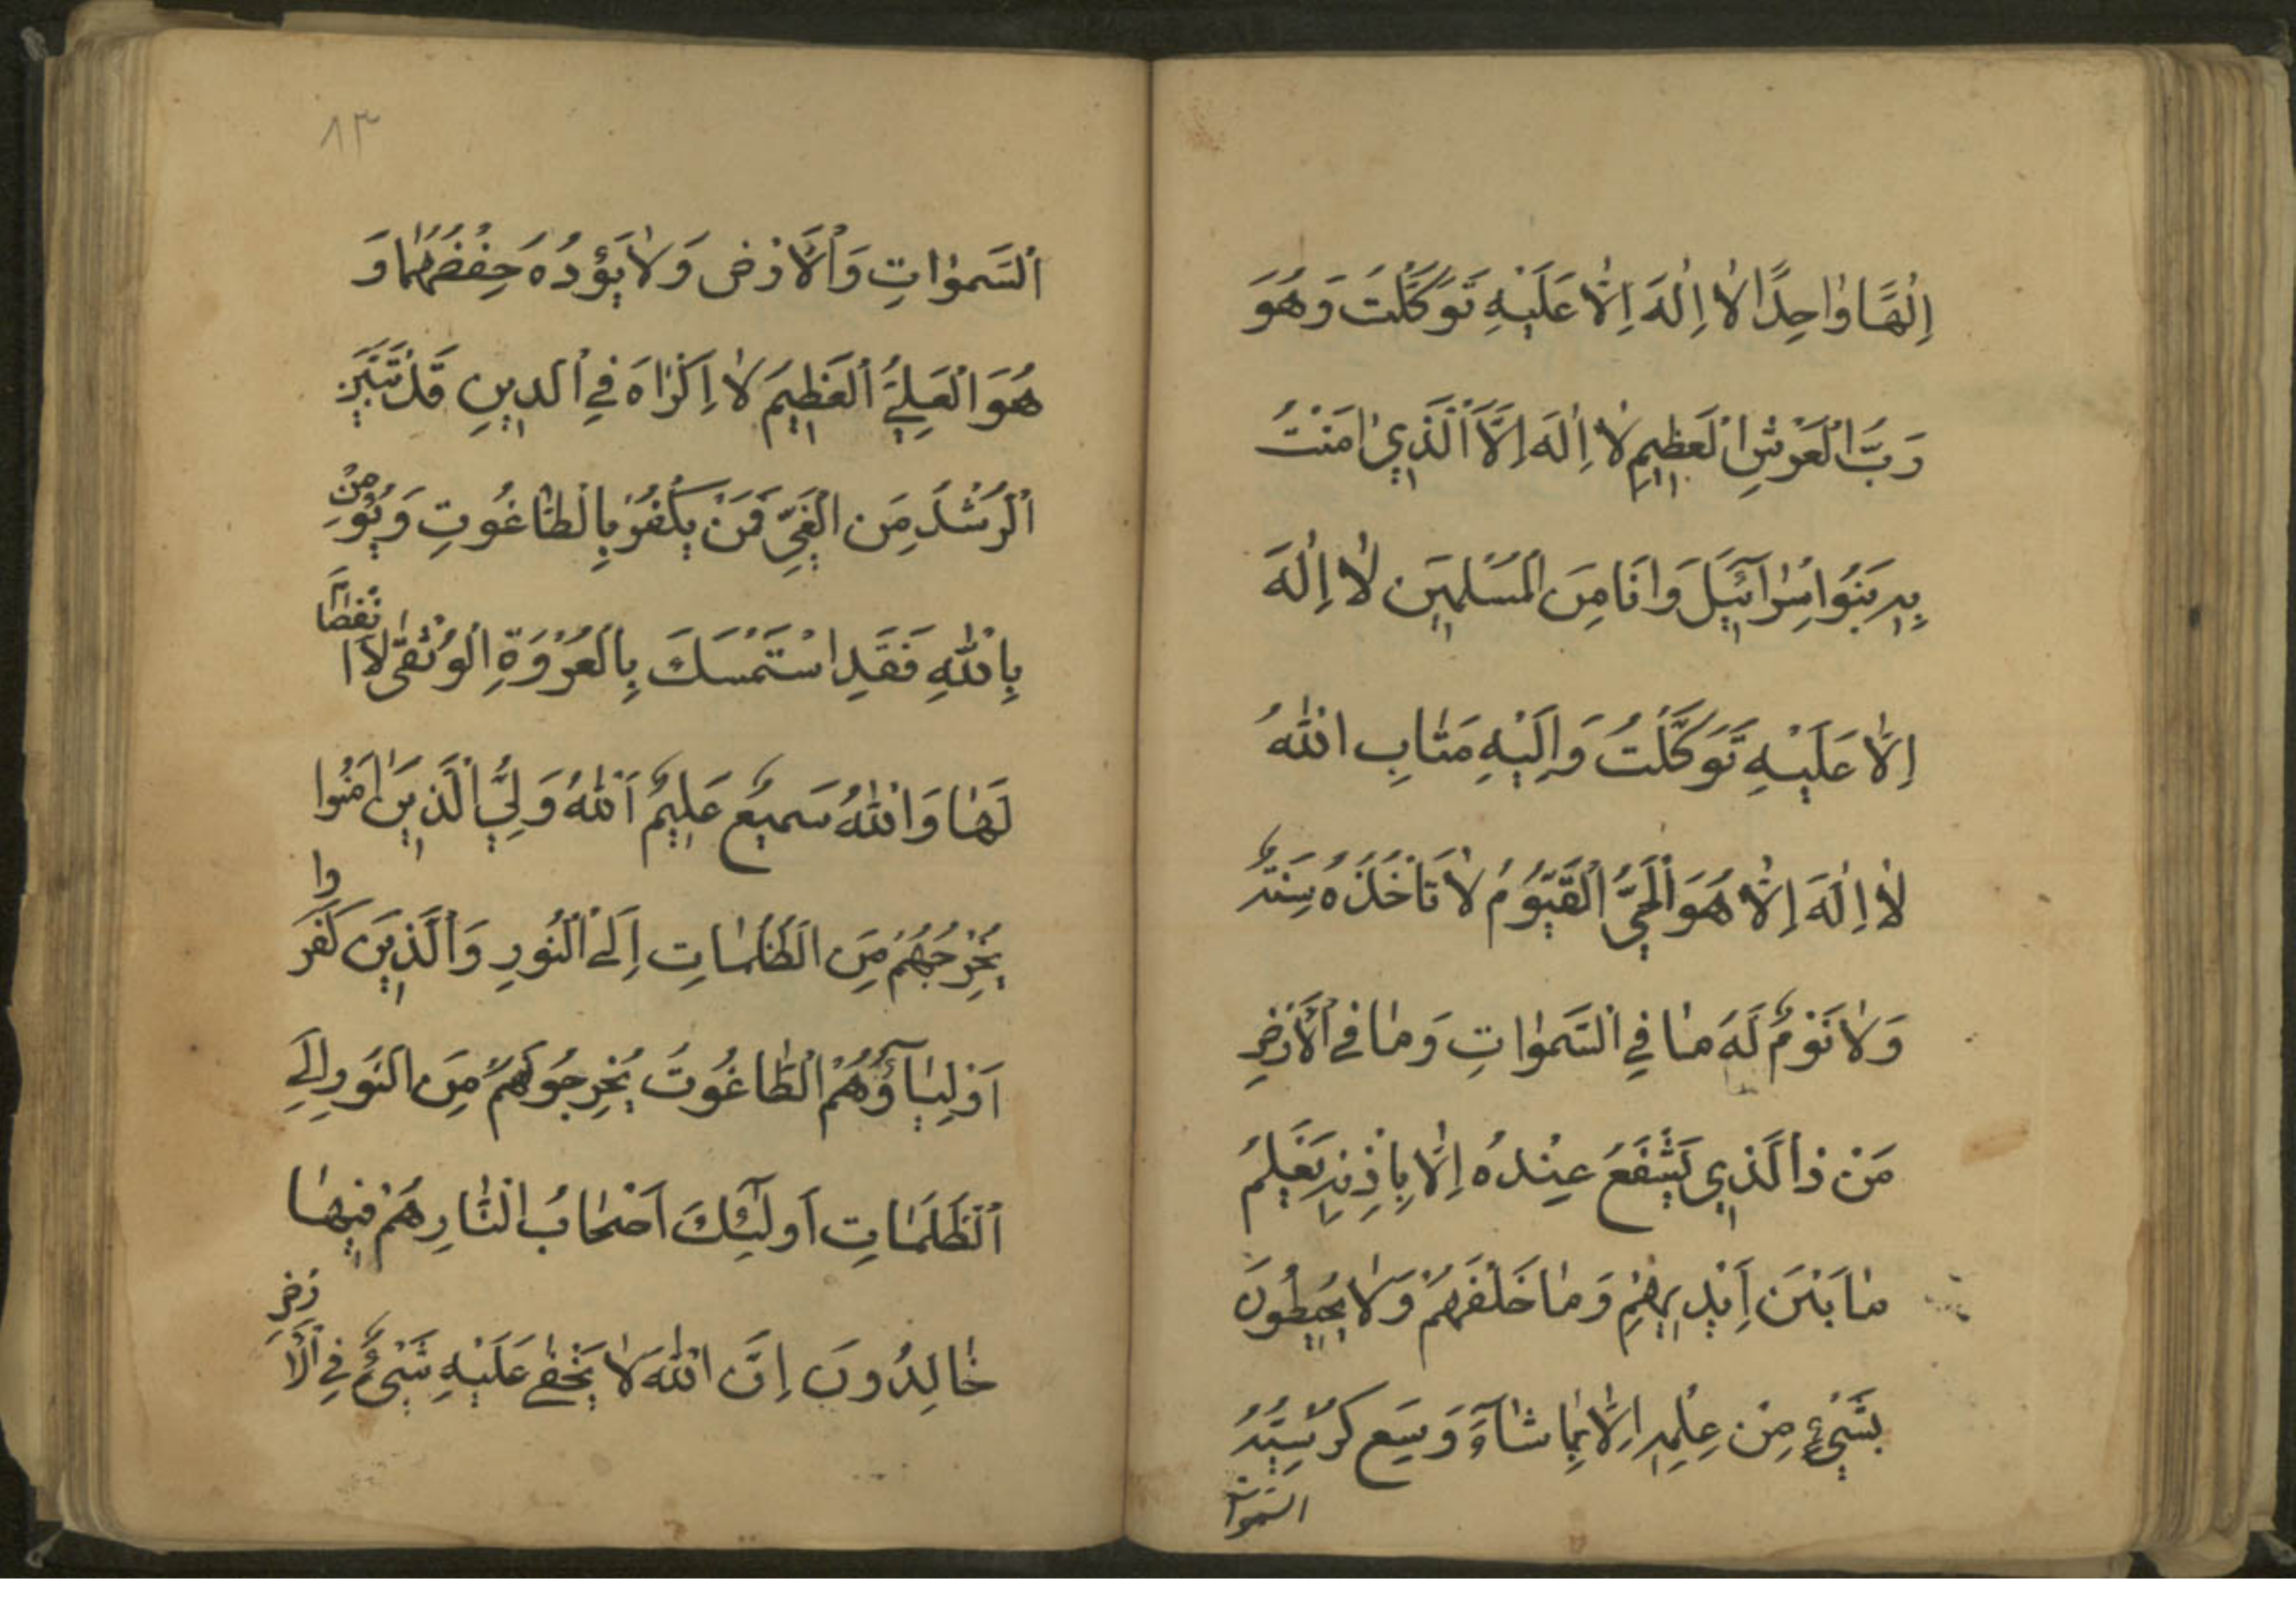 اِلٰهًا وٰاحِدًا لاٰ اِلٰهَ اِلاّٰ عَلَيْهِ تَوَكَّلْتُ وَهُوَ
رَبُّ الْعَرْشِ الْعَظِيمِ لاٰ اِلٰهَ اِلاَّ الَّذِي اٰمَنَتْ
بِهِ بَنُوا اِسْرٰآئِيلَ وَاَنَا مِنَ الْمُسْلِمِينَ لاٰ اِلٰهَ
اِلاّٰ عَلَيْهِ تَوَكَّلْتُ وَاِلَيْهِ مَتٰابِ اللّٰهُ
لاٰ اِلٰهَ اِلاّٰ هُوَ الْحَيُّ الْقَيُّومُ لاٰ تَاْخُذُهُ سِنَةٌ
وَلاٰ نَوْمٌ لَهُ مٰا فِي السَّمٰوٰاتِ وَمٰا فِي الْاَرْضِ
مَنْ ذَا الَّذِي يَشْفَعُ عِنْدَهُ اِلاّٰ بِاِذْنِهِ يَعْلَمُ
مٰا بَيْنَ اَيْدِيهِمْ وَمٰا خَلْفَهُمْ وَلاٰ يُحِيطُونَ
بِشَيْءٍ مِنْ عِلْمِهِ اِلاّٰ بِمٰا شٰآءَ وَسِعَ كُرْسِيُّهُ
السموات
١٣
اَلسَّمٰوٰاتِ وَالْاَرْضَ وَلاٰ يَؤُدُهُ حِفْظُهُمٰا وَ
هُوَ الْعَلِيُّ الْعَظِيمُ لاٰ اِكْرٰاهَ فِي الدِّينِ قَدْ تَبَيَّنَ
الرُّشْدُ مِنَ الْغَيِّ فَمَنْ يَكْفُرْ بِالطّٰاغُوتِ وَيُؤْمِنْ
بِاللّٰهِ فَقَدِ اسْتَمْسَكَ بِالْعُرْوَةِ الْوُثْقٰى لاَ انْفِصٰامَ
لَهٰا وَاللّٰهُ سَمِيعٌ عَلِيمٌ اَللّٰهُ وَلِيُّ الَّذِينَ اٰمَنُوا
يُخْرِجُهُمْ مِنَ الظُّلُمٰاتِ اِلَى النُّورِ وَالَّذِينَ كَفَرُوا
اَوْلِيٰآؤُهُمُ الطّٰاغُوتُ يُخْرِجُونَهُمْ مِنَ النُّورِ اِلَى
الظُّلُمٰاتِ اُولٰئِكَ اَصْحٰابُ النّٰارِ هُمْ فِيهٰا
خٰالِدُونَ اِنَّ اللّٰهَ لاٰ يَخْفٰى عَلَيْهِ شَيْءٌ فِي الْاَرْضِ